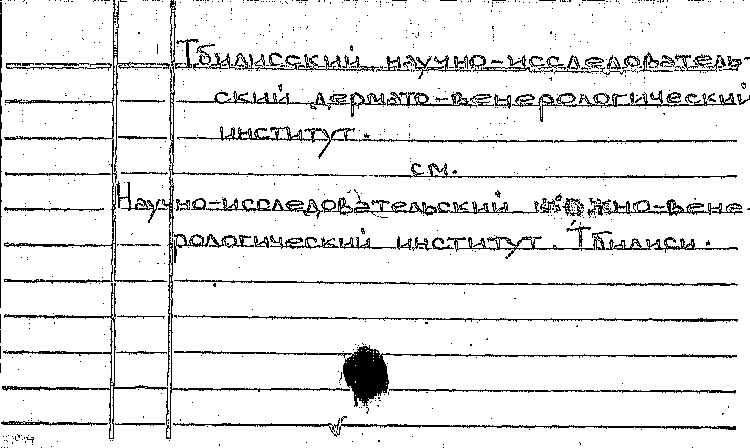 Тбилисский научно-исследователь-
ский дермато-венерологический
институт.
см.
Научно-исследовательский кожно-вене-
рологический институт. Тбилиси.